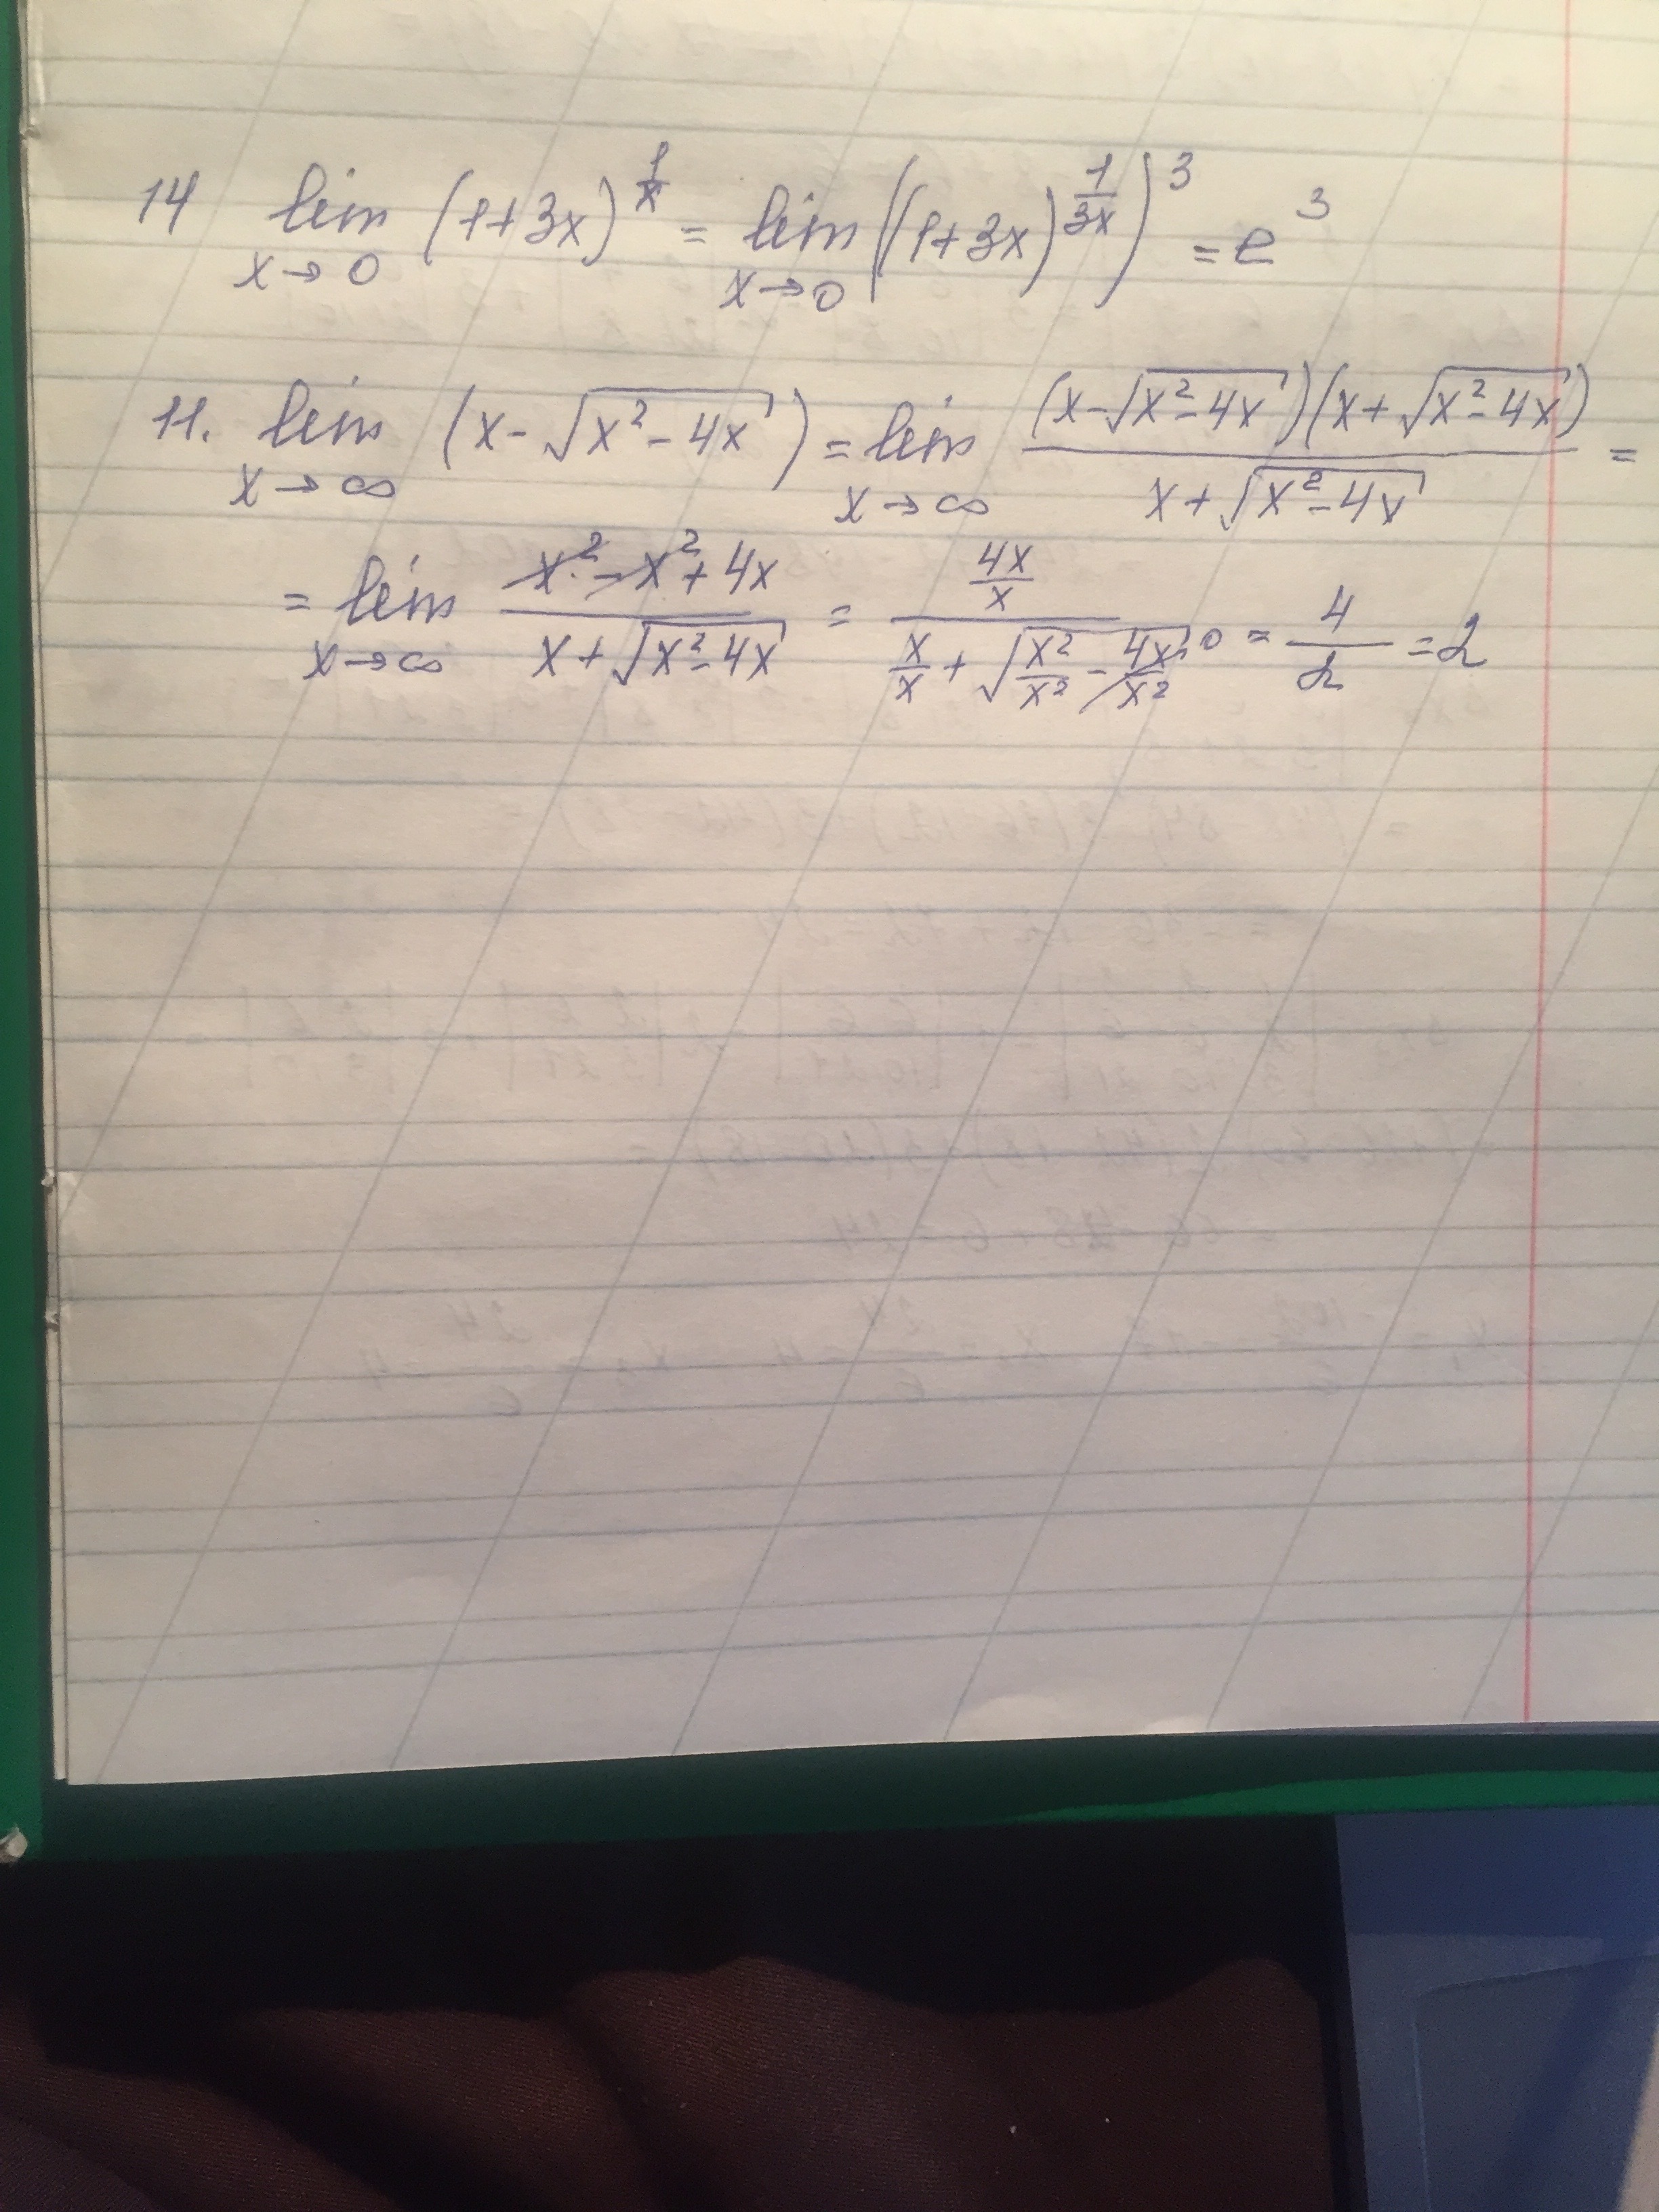 14 lim x→0 (1+3x)^(1/x) = lim x→0 ((1+3x)^(1/3x))^3 = e^3
11. lim x→∞ (x-√(x²-4x)) = lim x→∞ (x-√(x²-4x))(x+√(x²-4x)) / (x+√(x²-4x)) =
= lim x→∞ (x²-x²+4x) / (x+√(x²-4x)) = (4x/x) / (x/x+√(x²/x²-4x/x²)) 0 = 4/2 = 2